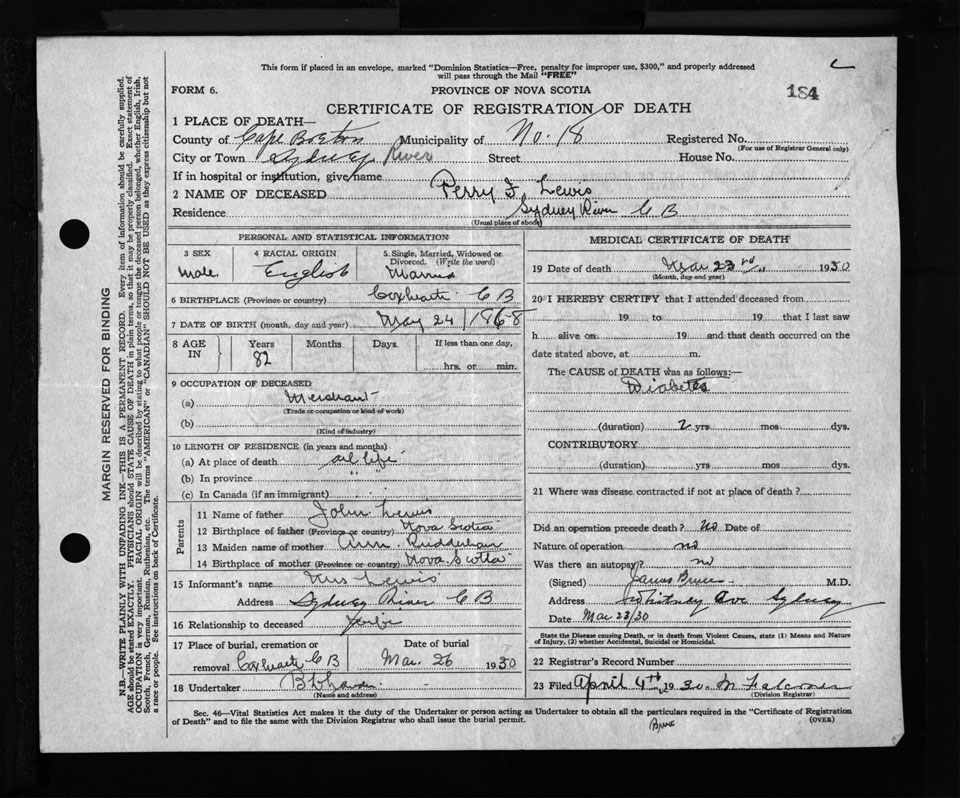 This form if placed in an envelope, marked "Dominion Statistics—Free, penalty for improper use, $300," and properly addressed
will pass through the Mail "FREE"
FORM 6. PROVINCE OF NOVA SCOTIA 184
CERTIFICATE OF REGISTRATION OF DEATH
1 PLACE OF DEATH—
County of Cape Breton Municipality of No. 18 Registered No.
(For use of Registrar General only)
City or Town Sydney River Street House No.
If in hospital or institution, give name
2 NAME OF DECEASED Perry F. Lewis
Residence Sydney River C B
(Usual place of abode)
PERSONAL AND STATISTICAL INFORMATION
3 SEX 4 RACIAL ORIGIN 5 Single, Married, Widowed or
Divorced. (Write the word)
Male. English Married
6 BIRTHPLACE (Province or country) Coxheath C B
7 DATE OF BIRTH (month, day and year) May 24/1868
8 AGE IN Years Months Days If less than one day,
82 hrs. or min.
9 OCCUPATION OF DECEASED
(a) Merchant
(Trade or occupation or kind of work)
(b)
(Kind of industry)
10 LENGTH OF RESIDENCE (in years and months)
(a) At place of death all life
(b) In province "
(c) In Canada (if an immigrant)
Parents
11 Name of father John Lewis
12 Birthplace of father (Province or country) Nova Scotia
13 Maiden name of mother Ann
14 Birthplace of mother (Province or country) Nova Scotia
15 Informant's name Mrs Lewis
Address Sydney River C B
16 Relationship to deceased
17 Place of burial, cremation or Date of burial
removal Coxheath C B Mar. 26 1930
18 Undertaker
(Name and address)
MEDICAL CERTIFICATE OF DEATH
19 Date of death Mar 23rd 1930
(Month, day and year)
20 I HEREBY CERTIFY that I attended deceased from
19 to 19 that I last saw
h alive on 19 and that death occurred on the
date stated above, at m.
The CAUSE OF DEATH was as follows:—
Diabetes
(duration) 2 yrs mos dys.
CONTRIBUTORY
(duration) yrs mos dys.
21 Where was disease contracted if not at place of death?
Did an operation precede death? no Date of
Nature of operation no
Was there an autopsy? no
(Signed) James Bruce M.D.
Address Whitney Ave Sydney
Date Mar 23/30
State the Disease causing Death, or in death from Violent Causes, state (1) Means and Nature
of Injury, (2) whether Accidental, Suicidal or Homicidal.
22 Registrar's Record Number
23 Filed April 4th 1930
(Division Registrar)
Sec. 46—Vital Statistics Act makes it the duty of the Undertaker or person acting as Undertaker to obtain all the particulars required in the "Certificate of Registration
of Death" and to file the same with the Division Registrar who shall issue the burial permit. (OVER)
Bruce
MARGIN RESERVED FOR BINDING
N.B.—WRITE PLAINLY WITH UNFADING INK—THIS IS A PERMANENT RECORD. Every item of information should be carefully supplied.
AGE should be stated EXACTLY. PHYSICIANS should STATE CAUSE OF DEATH in plain terms, so that it may be properly classified. Exact statement of
OCCUPATION is very important. RACIAL ORIGIN will be described by stating to what people or tongue the deceased person belonged, whether English, Irish,
Scotch, French, German, Russian, Ruthenian, etc. The terms "AMERICAN" or "CANADIAN" SHOULD NOT BE USED as they express citizenship but not
a race or people. See instructions on back of Certificate.